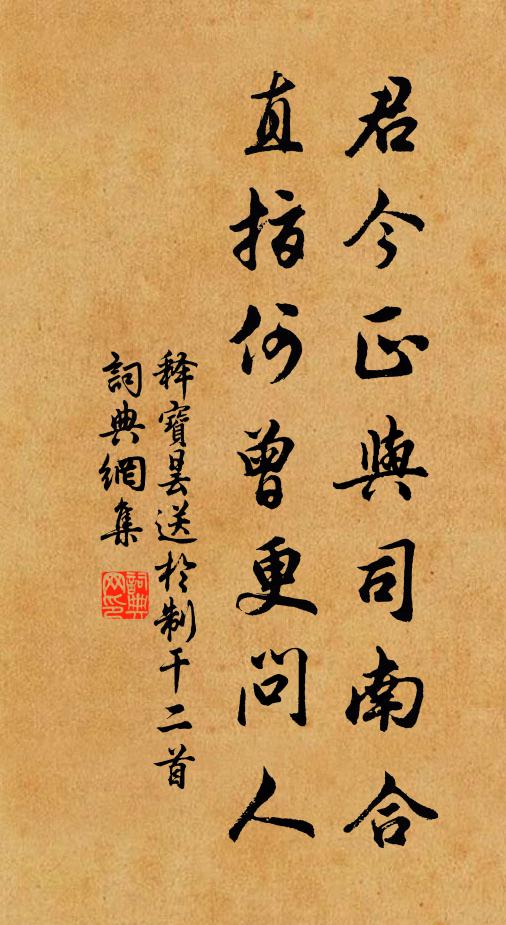 君今正與司南合
直指何曾更問人
释寶曇送於制干二首
詞典網集
詞典网印